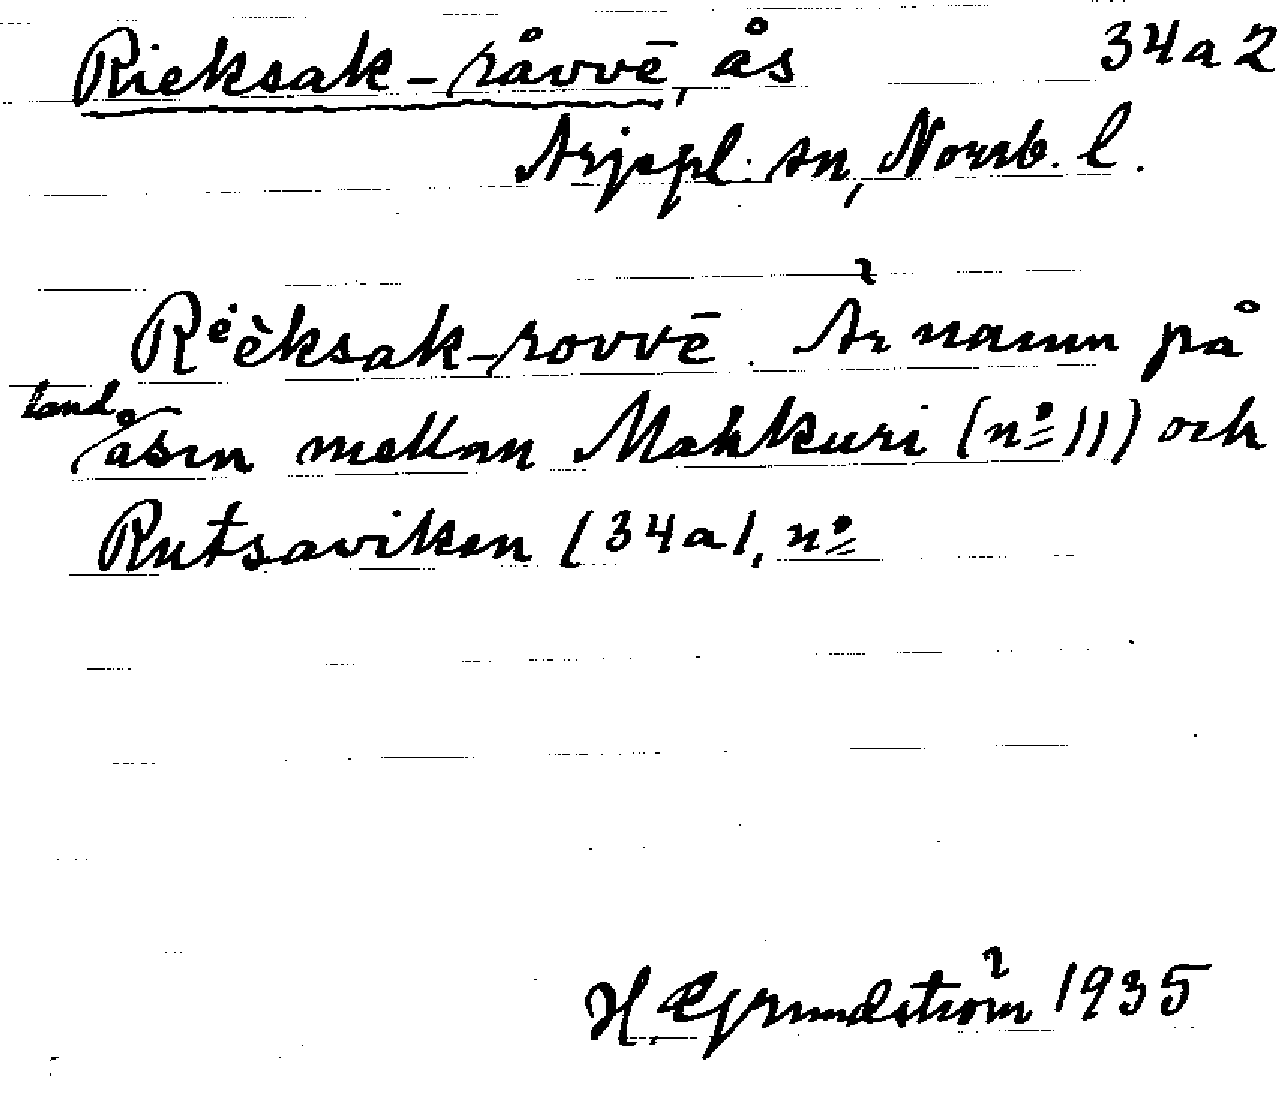 Rieksak-råvvē, ås 34a2
Arjepl. sn, Norrb. l.
Rėèksak-rovvē. Är namn på
land
åsen mellan Mahkuri (nº 11) och
Rutsaviken (34a), nº
H. Grundström 1935